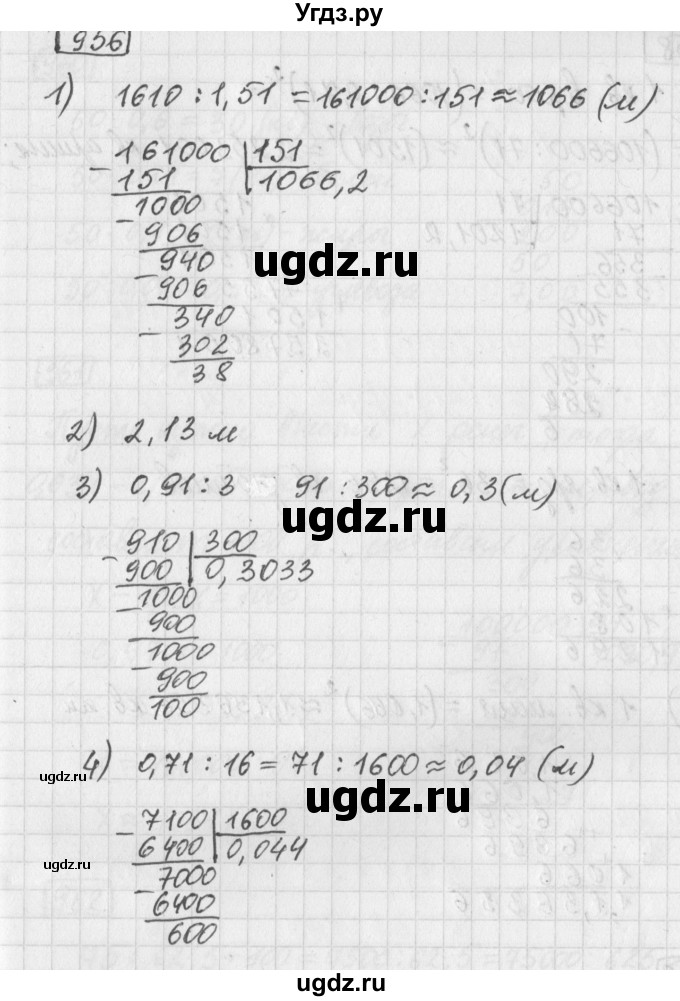 ©ГДЗ.РУ
956
1) 1610 : 1,51 = 161000 : 151 ≈ 1066 (м)
– 161000 | 151
151 1066,2
– 1000
906
– 940
906
– 340
302
38
ugdz.ru
2) 2,13 м
3) 0,91 : 3 91 : 300 ≈ 0,3 (м)
ugdz.ru
– 910 | 300
900 0,3033
– 1000
900
– 1000
900
100
4) 0,71 : 16 = 71 : 1600 ≈ 0,04 (м)
ugdz.ru
ugdz.ru
– 7100 | 1600
6400 0,044
– 7000
6400
600
ugdz.ru
ugdz.ru